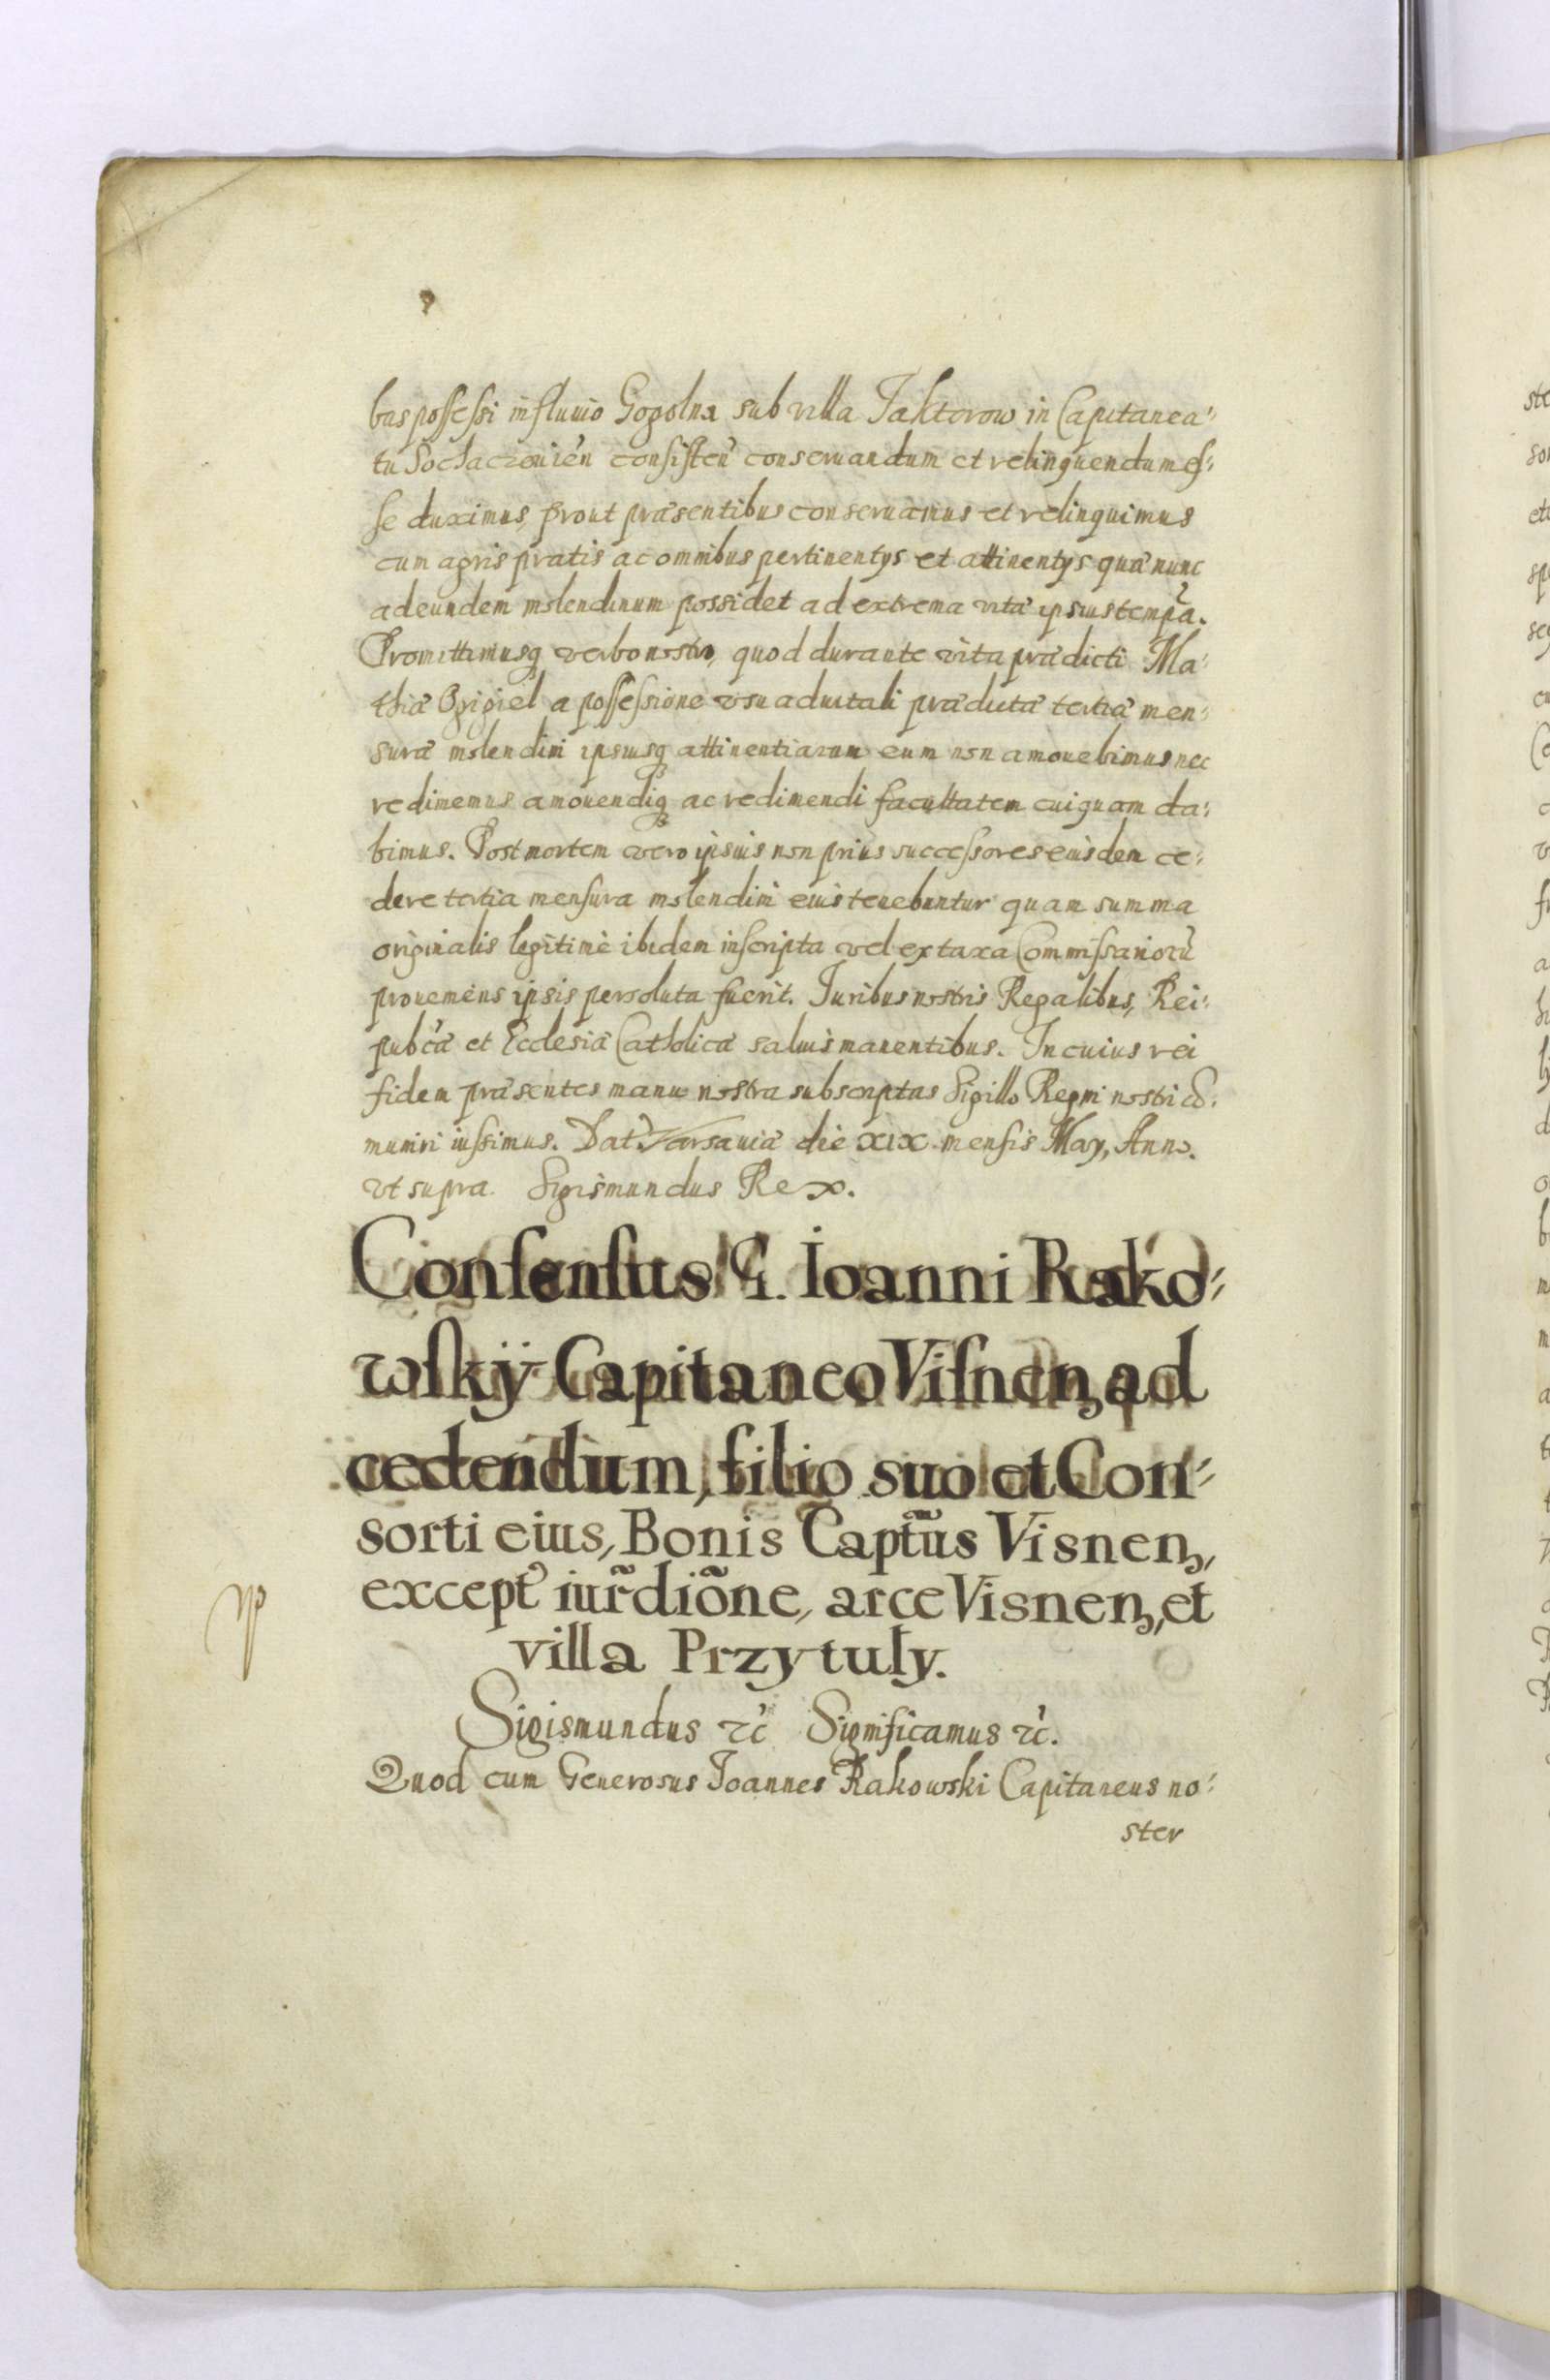 bus possessi in fluuio Gogolna sub villa Jaktorow in Capitanea:
tu Sochaczouień consisteń conseruandum et relinquendum es:
se duximus, prout præsentibus conseruamus et relinquimus
cum agris pratis ac omnibus pertinentijs et attinentijs quæ nunc
ad eundem molendinum possidet ad extrema vitæ ipsius tempa.
Promittimusq verbo nostro, quod durante vita prædicti Ma:
thiæ Ogigiel a possessione vsu aduitali prædictæ tertiæ men:
suræ molendini ipsiusq attinentiarum eum non amouebimus nec
redimemus amouendiq ac redimendi facultatem cuiquam da:
bimus. Post mortem vero ipsius non prius successores eiusdem ce:
dere tertia mensura molendini eius tenebuntur quam summa
originalis legitimè ibidem inscripta vel ex taxa Commissariorū
proueniens ipsis persoluta fuerit. Juribus nostris Regalibus, Rei:
pubcæ et Ecclesiæ Catholicæ saluis manentibus. In cuius rei
fidem præsentes manu nostra subscriptas Sigillo Regni nostri cō:
muniri iussimus. Dat. Varsauiæ die XIX mensis May, Anno.
vt supra. Sigismundus Rex.
Consensus G. Ioanni Rako:
wskÿ Capitaneo Visneń, ad
cedendum, filio suo et Con:
sorti eius, Bonis Captũs Visneń,
except iur̃diõne, arce Visneń, et
villa Przytuły.
Sigismundus ꝛc Significamus ꝛc.
Quod cum Generosus Joannes Rakowski Capitaneus no:
ster